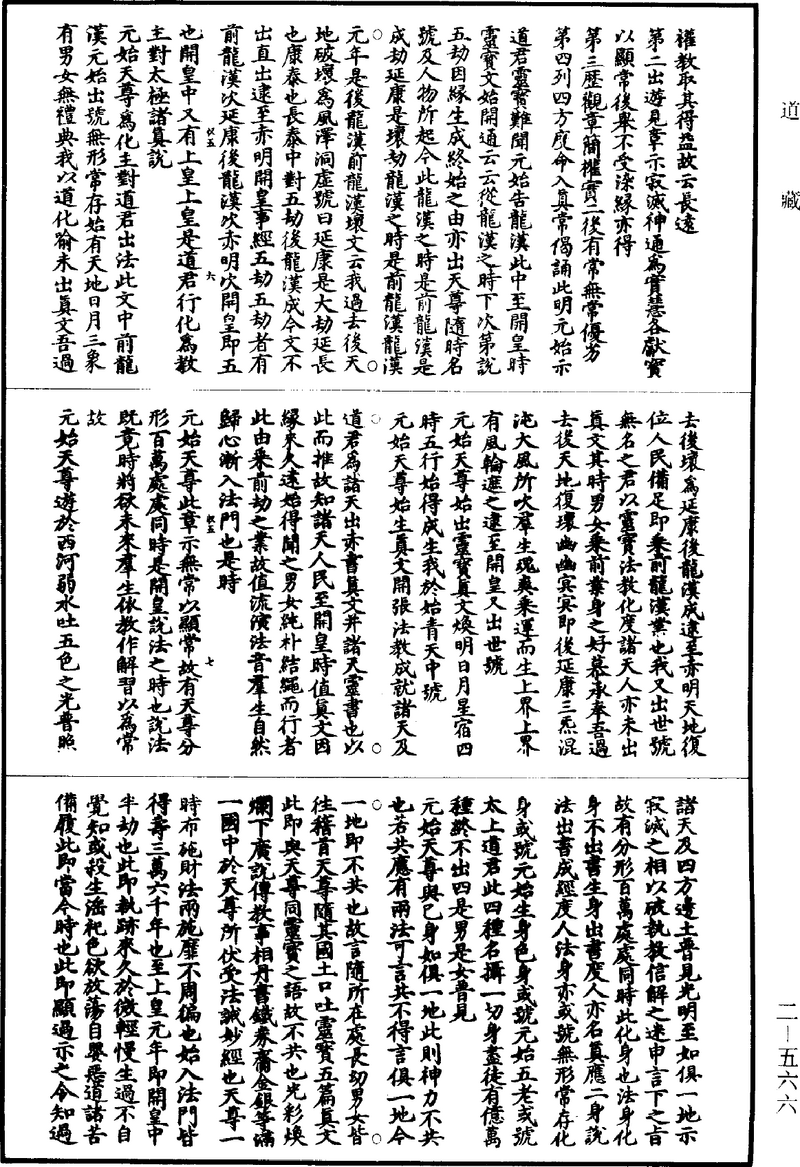 道藏
權教取其得益故云長遠
第二出遊見章示寂滅神通爲實慧各獻寶
以顯常後舉不受染緣亦得
第三歷觀章簡權實一後有常無常優劣
第四列四方度命入眞常偈誦此明元始示
道君靈寶難聞元始告龍漢此中至開皇時
靈寶文始開通云云從龍漢之時下次第說
五劫因緣生成終始之由亦出天尊隨時名
號及人物所起今此龍漢之時是前龍漢是
成劫延康是壞劫龍漢之時是前龍漢龍漢
元年是後龍漢前龍漢壞文云我過去後天
地破壞爲風澤洞虛號曰延康是大劫延長
也康泰也長泰中對五劫後龍漢成今文不
出直出逮至赤明開皇事經五劫五劫者有
前龍漢次延康後龍漢次赤明次開皇即五
也開皇中又有上皇上皇是道君行化爲教
主對太極諸眞說
元始天尊爲化主對道君出法此文中前龍
漢元始出號無形常存始有天地日月三象
有男女無禮典我以道化喻未出眞文吾過
去後壞爲延康後龍漢成逮至赤明天地復
位人民備足即乘前龍漢業也我又出世號
無名之君以靈寶法教化度諸天人亦未出
眞文其時男女乘前業身之好慕承奉吾過
去後天地復壞幽幽冥冥即後延康三炁混
沌大風所吹羣生魂爽乘運而生上界上界
有風輪遮之逮至開皇又出世號
元始天尊始出靈寶眞文煥明日月星宿四
時五行始得成生我於始青天中號
元始天尊始生眞文開張法教成就諸天及
道君爲諸天出赤書眞文并諸天靈書也以
此而推故知諸天人民至開皇時值眞文因
緣來久遠始得聞之男女純朴結繩而行者
此由乘前劫之業故值流演法音羣生自然
歸心漸入法門也是時
元始天尊此章示無常以顯常故有天尊分
形百萬處處同時是開皇說法之時也說法
既竟時將欲末來羣生依教作解習以爲常
故
元始天尊遊於西河弱水吐五色之光普照
諸天及四方邊土普見光明至如俱一地示
寂滅之相以破執教信解之迷申言下之旨
故有分形百萬處處同時此化身也法身化
身不出書生身出書度人亦名眞應二身說
法出書成經度人法身亦或號無形常存化
身或號元始生身色身或號元始五老或號
太上道君此四種名攝一切身盡徒有億萬
種終不出四是男是女普見
元始天尊與己身如俱一地此則神力不共
也若共應有兩法可言其不得言俱一地今
一地即不共也故言隨所在處長幼男女皆
往稽首天尊隨其國土口吐靈寶五篇眞文
此即與天尊同靈寶之語故不共也光彩煥
爛下廣說傳教事相丹書鐵券齎金銀等滿
一國中於天尊所伏受法誡妙經也天尊一
時布施財法兩施靡不周徧也始入法門皆
得壽三萬六千年也至上皇元年即開皇中
半劫也此即執跡來久於微輕慢生過不自
覺知或殺生淫祀色欲放蕩自嬰惡道諸苦
備履此即當今時也此即顯過示之令知過
二—五六六